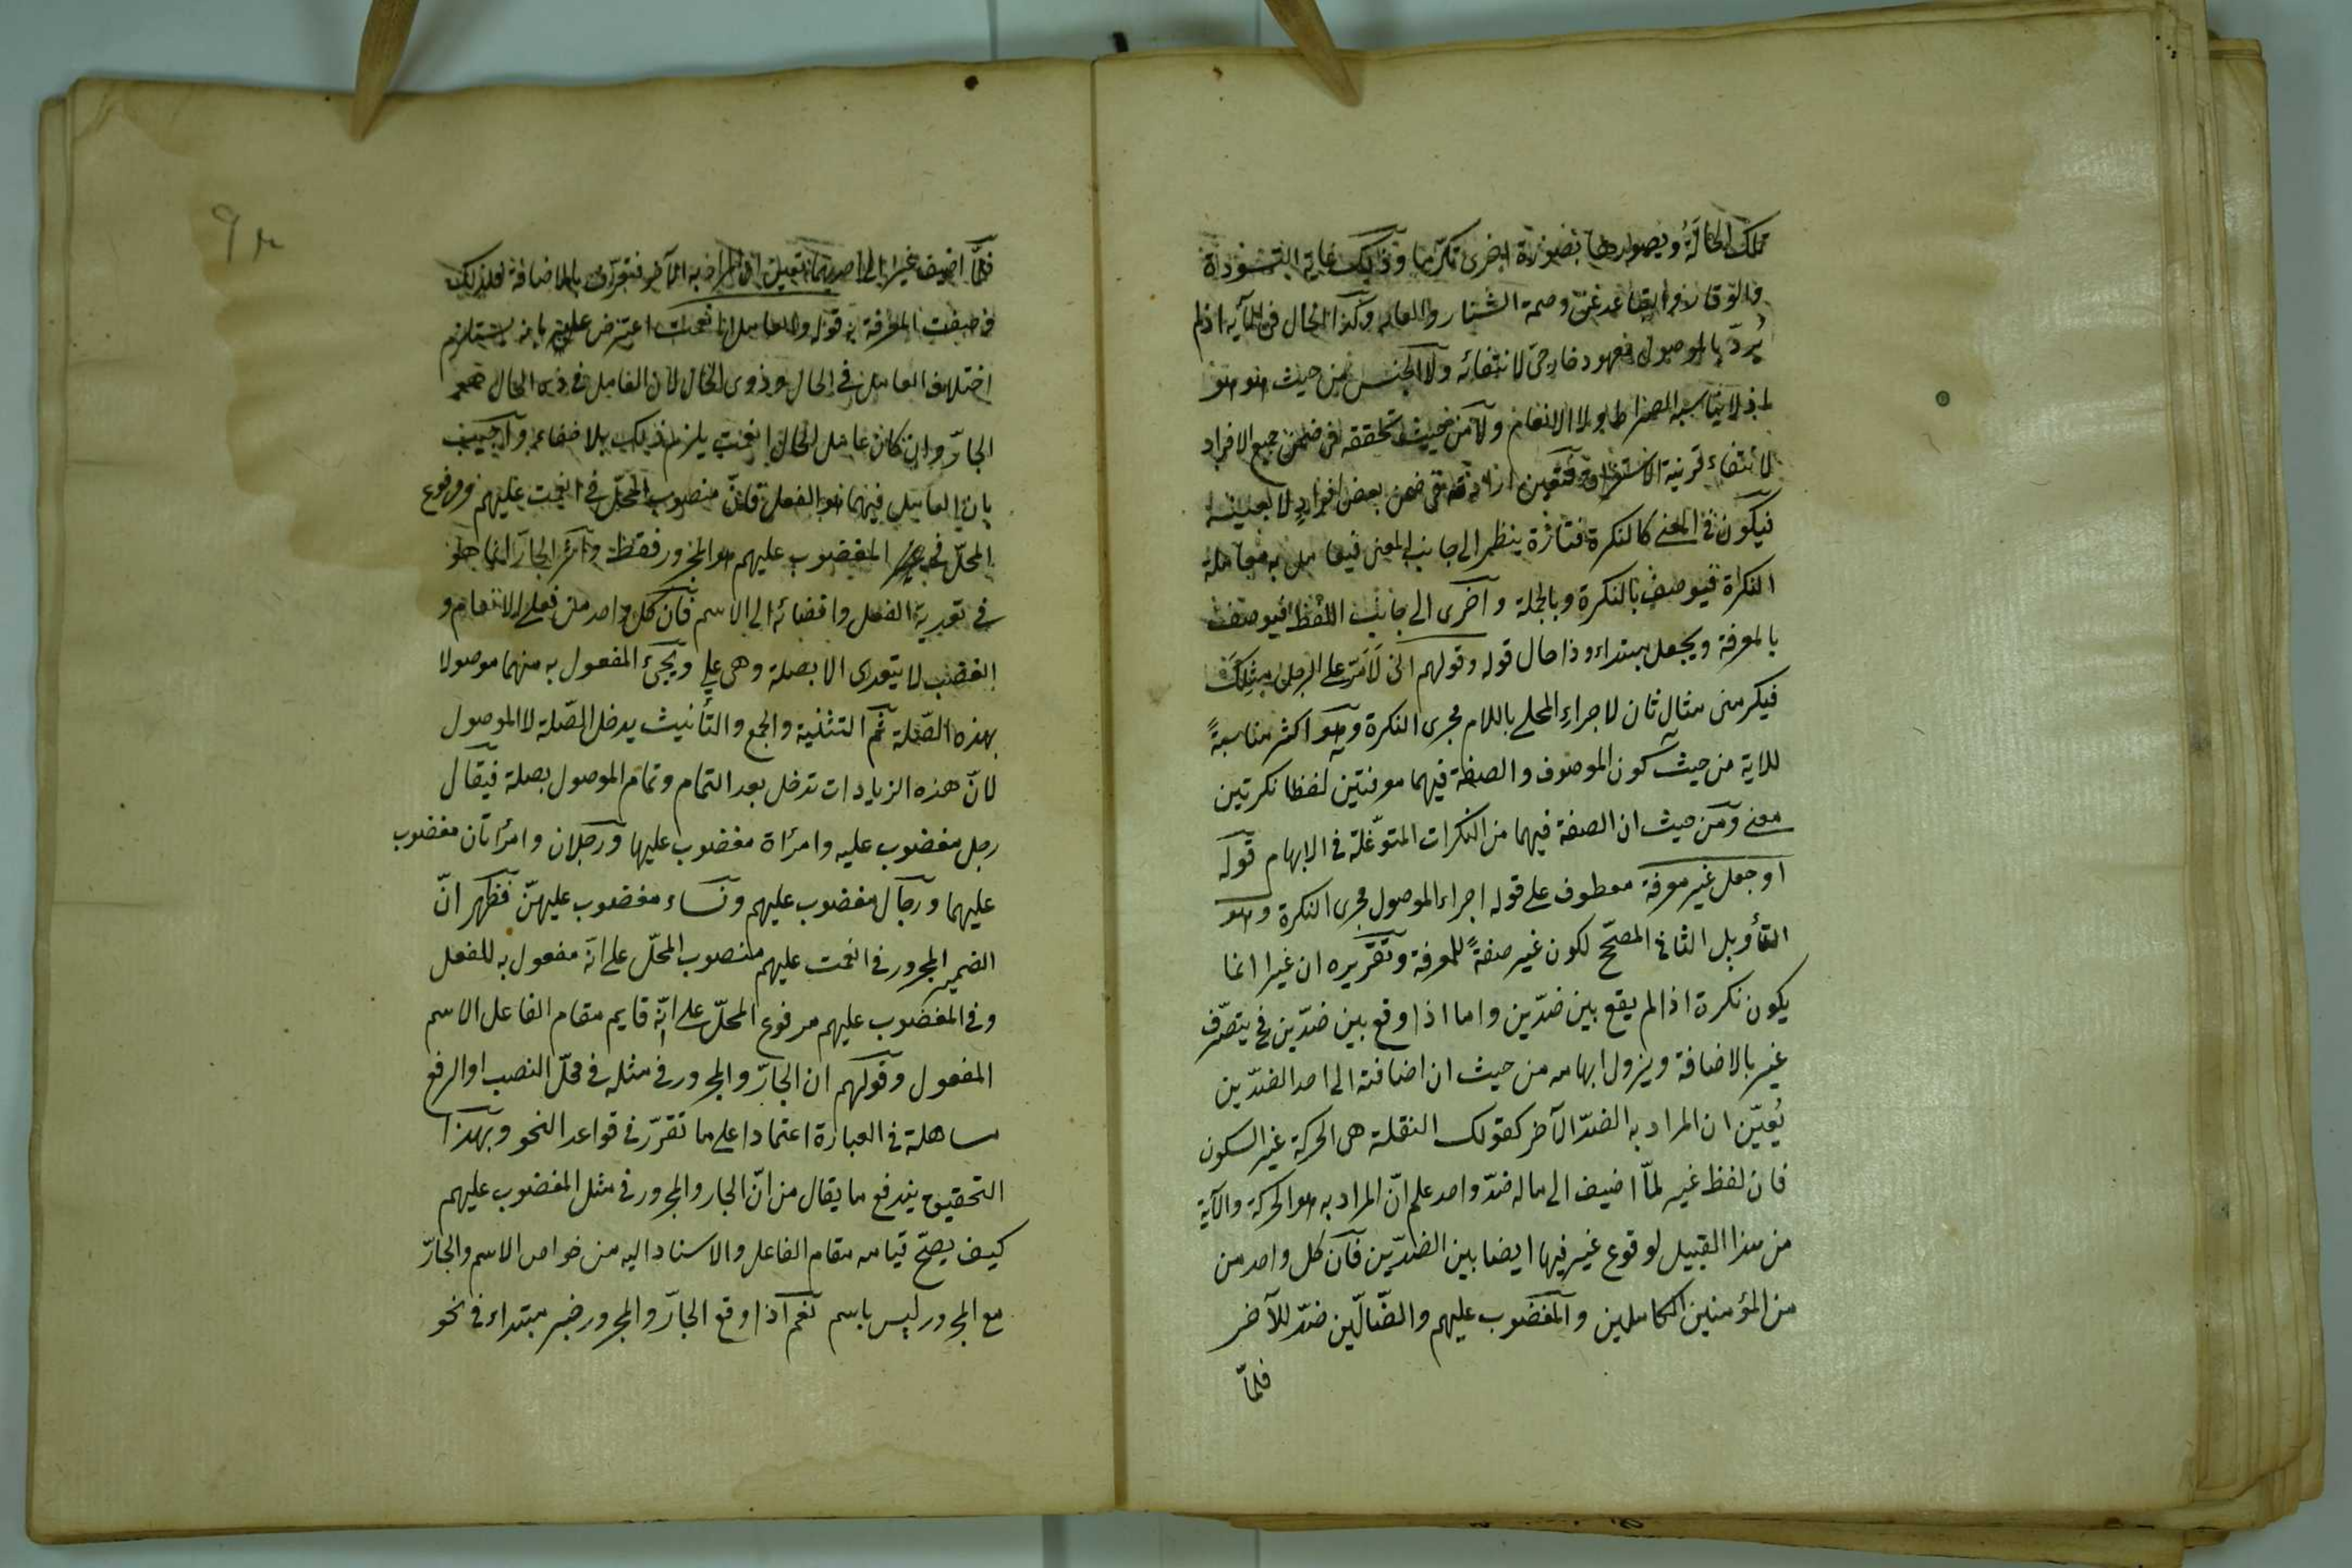 تلك الحالة ويصورها بصورة اخرى تكرما وذلك غاية التؤدة
والوقار وابعد عن وصمة الشنار والعار وكذا الحال في الآية اذ لم
يُردّ بالموصول معهود خارجى لانتفائه ولا الجنس من حيث هو هو
اذ لا يناسبه الصراط ولا الانعام ولا من حيث تحققه فى ضمن جميع الافراد
لانتفاء قرينة الاستغراق فتعين ارادته فى ضمن بعض افراد لا بعينه
فيكون فى المعنى كالنكرة فتارة ينظر الى جانب المعنى فيعامل به معاملة
النكرة فيوصف بالنكرة وبالجملة وأخرى الى جانب اللفظ فيوصف
بالمعرفة ويجعل مبتداء وذا حال قوله وقولهم انى لَأمرّ على الرجل مثلك
فيكرمنى مثال ثان لاجراء المحلى باللام مجرى النكرة وهو اكثر مناسبةً
للاية من حيث كون الموصوف والصفة فيهما معرفتين لفظا نكرتين
معنى ومن حيث ان الصفة فيهما من النكرات المتوغّلة فى الابهام قوله
او جعل غير معرفة معطوف على قوله اجراء الموصول مجرى النكرة وهو
التأويل الثانى المصحّح لكون غير صفةً للمعرفة وتقريره ان غيرا انما
يكون نكرة اذا لم يقع بين ضدّين واما اذا وقع بين ضدّين فح يتعرّف
غير بالاضافة ويزول ابهامه من حيث ان اضافته الى احد الضدّين
يُعيّن ان المراد به الضدّ الآخر كقولك النقلة هى الحركة غير السكون
فان لفظ غير لمّا اضيف الى ماله ضدّ واحد علم انّ المراد به هو الحركة والآية
من هذا القبيل لوقوع غير فيها ايضا بين الضدّين فان كل واحد من
من المؤمنين الكاملين والمغضوب عليهم والضّالّين ضدّ للآخر
فلمّا
فلمّا اضيف غير الى احدهما تعين ان المراد به الآخر فتعرّف بالاضافة فلذلك
وصفت المعرفة به قوله والعامل انعمت اعترض عليه بانه يستلزم
اختلاف العامل فى الحال وذوى الحال لان العامل فى ذى الحال هو
الجارّ وان كان عامل الحال انعمت يلزم ذلك بلا خفاء واجيب
بان العامل فيهما هو الفعل فانّ منصوب المحلّ فى انعمت عليهم ومرفوع
المحلّ فى غير المغضوب عليهم هو المجرور فقط واثر الجارّ انما هو
فى تعدية الفعل وافضائه الى الاسم فان كل واحد من فعلى الانعام و
الغضب لا يتعدى الا بصلة وهى على ويجئ المفعول به منهما موصولا
بهذه الصّلة ثم التثنية والجمع والتأنيث يدخل الصّلة لا الموصول
لانّ هذه الزيادات تدخل بعد التمام وتمام الموصول بصلة فيقال
رجل مغضوب عليه وامرأة مغضوب عليها ورجلان وامرأتان مغضوب
عليهما ورجال مغضوب عليهم ونساء مغضوب عليهنّ فظهر انّ
الضمير المجرور فى انعمت عليهم منصوب المحلّ على انّه مفعول به للفعل
وفى المغضوب عليهم مرفوع المحلّ على انّه قايم مقام الفاعل الاسم
المفعول وقولهم ان الجارّ والمجرور فى مثله فى محلّ النصب او الرفع
مساهلة فى العبارة اعتمادا على ما تقرّر فى قواعد النحو وبهذا
التحقيق يندفع ما يقال من انّ الجار والمجرور فى مثل المغضوب عليهم
كيف يصحّ قيامه مقام الفاعل والاسناد اليه من خواص الاسم والجارّ
مع المجرور ليس باسم نعم اذا وقع الجارّ والمجرور خبر مبتداء فى نحو